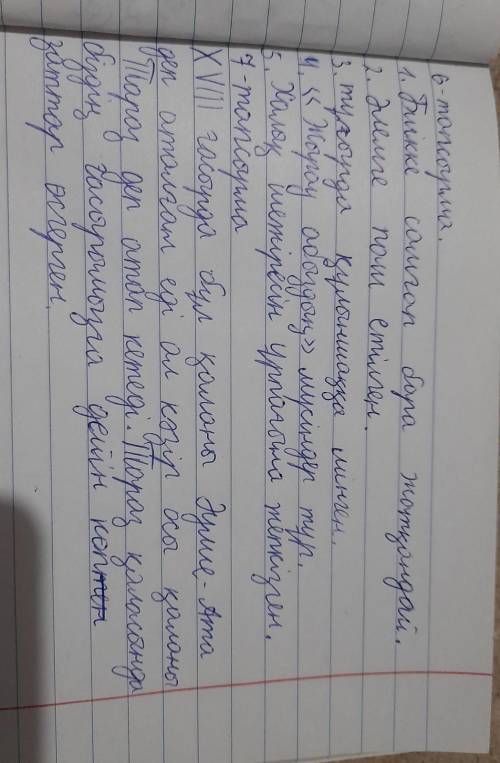 6-тапсырма.
1. Биікке самғап бара жатқандай.
2. Әлемге паш етілген.
3. тұғырда құланшаққа мінген.
4. «Жырау абыздың» мүсіндер тұр.
5. Халық шежіресін ұрпағына жеткізген.
7-тапсырма
XVIII ғасырда бұл қаланы Әулие-Ата
деп аталған еді ал кәзір осы қаланы
Тараз деп атап кетеді. Тараз қаласында
біздің ғасырымызға дейін көптен
заттар өзгерген.